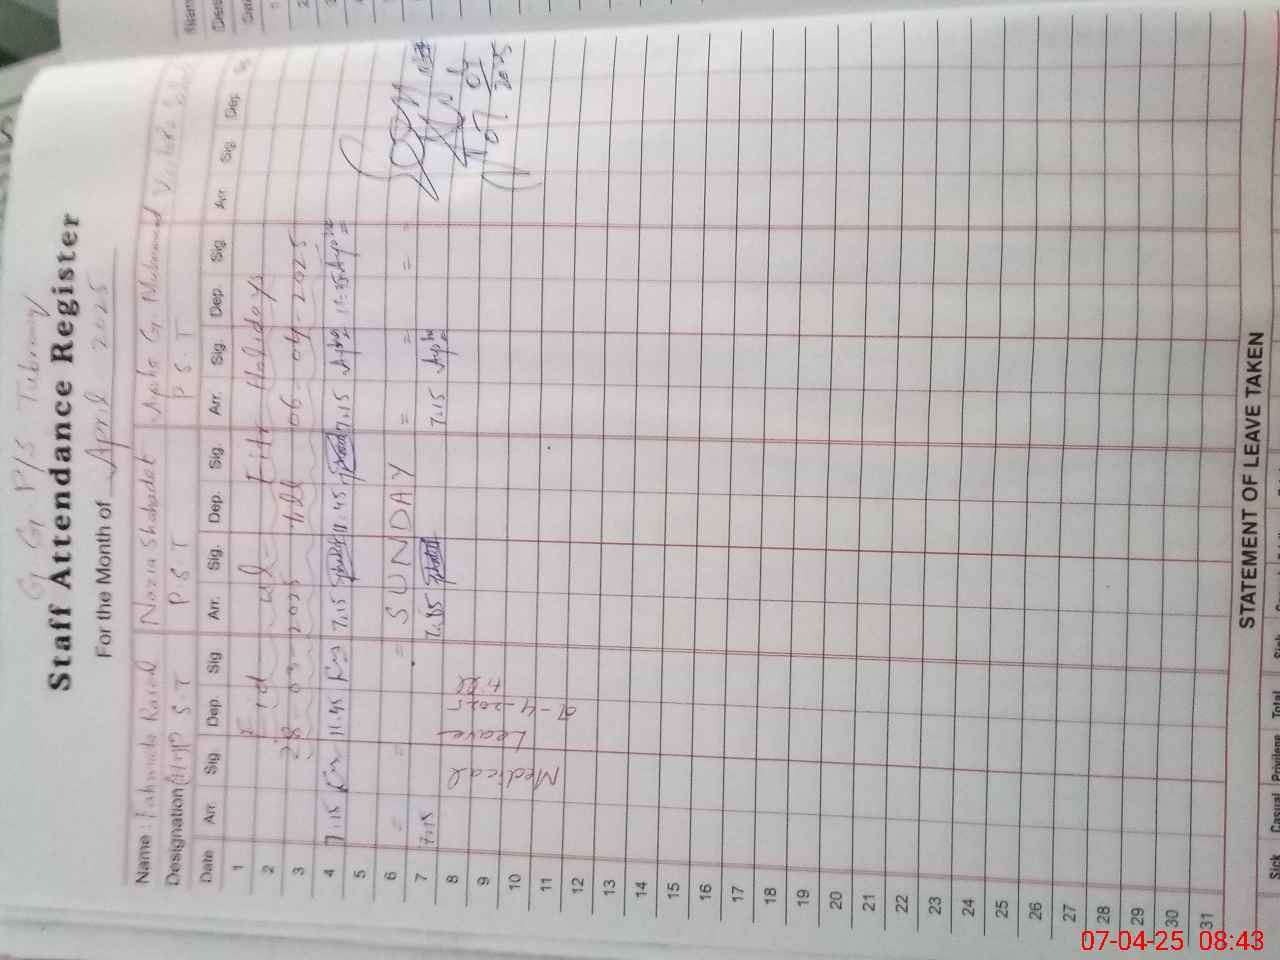 G. G. P/S
Staff Attendance Register
For the Month of April 2025
Name : Fahmida Rasool Nazia Shahadat G. Muhammad
Designation P S T P S T P S T
Date Arr. Sig Dep. Sig Arr. Sig. Dep. Sig. Arr. Sig. Dep. Sig. Arr. Sig. Dep.
1
2 Eid ul Fitr Holidays
3 28 - 03 - 2025 till 06 - 04 - 2025
4 7.15 11.45 7.15 11.45 7.15
5
6 = = = SUNDAY = = = =
7 7.15 7.15 7.15
8
9
10
11
12
13
14
15
16
17
18
19
20
21
22
23
24
25
26
27
28
29
30
31
Medical
Leave
till
9-4-2025
07
04
2025
STATEMENT OF LEAVE TAKEN
Sick Casual Privilege Total Sick
07-04-25 08:43